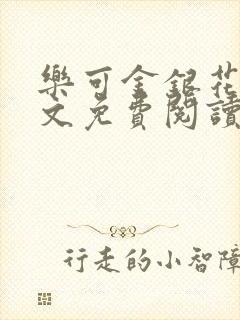 樂可金銀花
文免費閱讀
行走的小智障